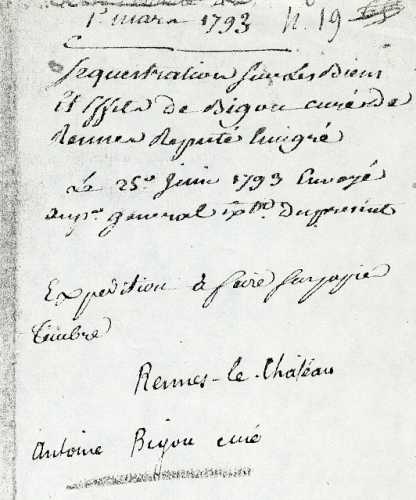 1r mars 1793 n. 19
Sequestration sur Les Biens
Et Effets de Bigou curé de
Rennes Reputé Emigré
Le 25e Juin 1793 Envoyé
au pr. general Expon. Du present
Expedition à faire sur papier
timbre
Rennes-le-Château
Antoine Bigou curé